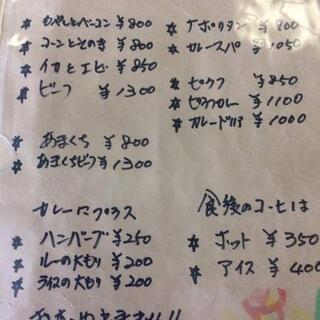 * もやしとベーコン ¥800
* コーンときのこ ¥800
* イカとエビ ¥850
* ビーフ ¥1300
* あまくち ¥800
* あまくちビーフ ¥1300
カレーにプラス
* ハンバーグ ¥250
* ルーの大もり ¥200
* ライスの大もり ¥200
* ナポリタン ¥900
* カレースパ ¥1050
* ピラフ ¥850
* ピラフカレー ¥1100
* カレードリア ¥1000
食後のコーヒーは
* ホット ¥350
* アイス ¥400